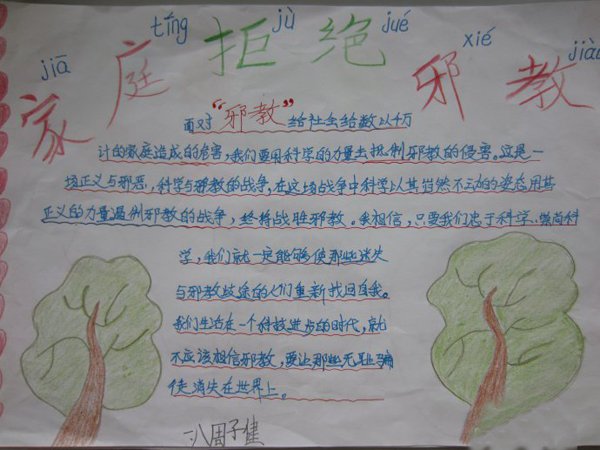 jiā tíng jù jué xié jiào
家庭拒绝邪教
面对“邪教”给社会给数以千万
计的家庭造成的危害,我们要用科学的力量去抵制邪教的侵害。这是一
场正义与邪恶,科学与邪教的战争,在这场战争中科学以其岿然不动的姿态用其
正义的力量遏制邪教的战争,终将战胜邪教。我相信,只要我们忠于科学,崇尚科
学,我们就一定能够使那些迷失
与邪教歧途的人们重新找回自我。
我们生活在一个科技进步的时代,就
不应该相信邪教,要让那些无耻骗
使消失在世界上。
一八周子健